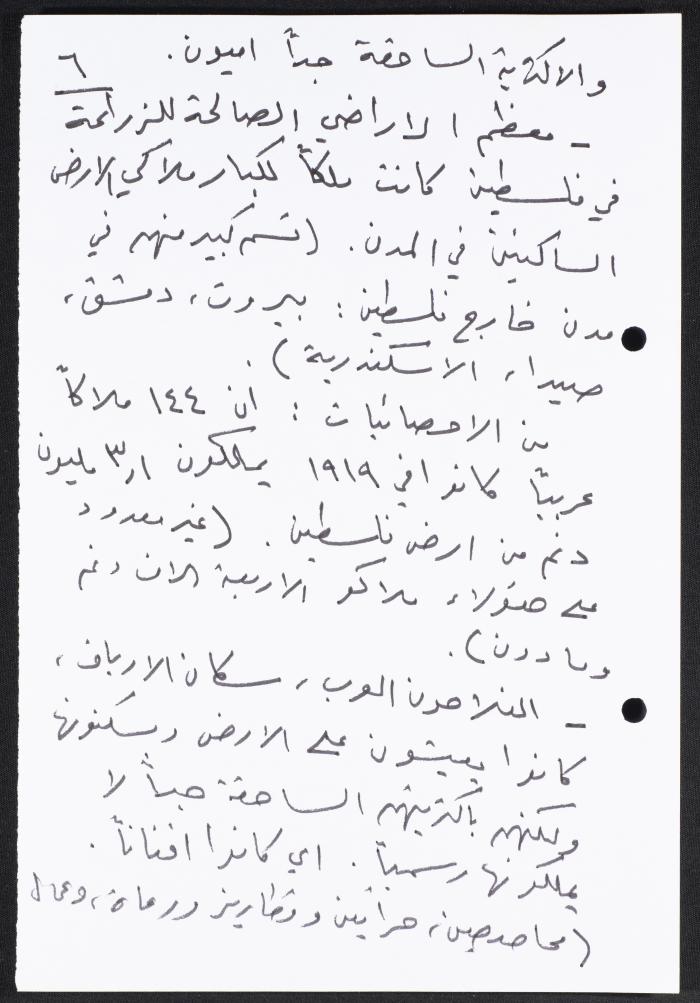 ٦
والاكثرية الساحقة جداً اميون.
- معظم الاراضي الصالحة للزراعة
في فلسطين كانت ملكاً لكبار ملاكي الارض
الساكنين في المدن. (قسم كبير منهم في
مدن خارج فلسطين: بيروت، دمشق،
صيدا، الاسكندرية).
من الاحصائيات: ان ١٤٤ ملاكاً
عربياً كانوا في ١٩١٩ يملكون ٣,١ مليون
دنم من ارض فلسطين. (غير معدود
على هؤلاء ملاكو الاربعة الاف دنم
وما دون).
- الفلاحون العرب، سكان الارياف،
كانوا يعيشون على الارض ويسكنونها
ولكنهم باكثريتهم الساحقة جداً لا
يملكونها رسمياً. اي كانوا اقناناً.
(محاصصين، حراثين وقطاريز ورعاة، وعمال